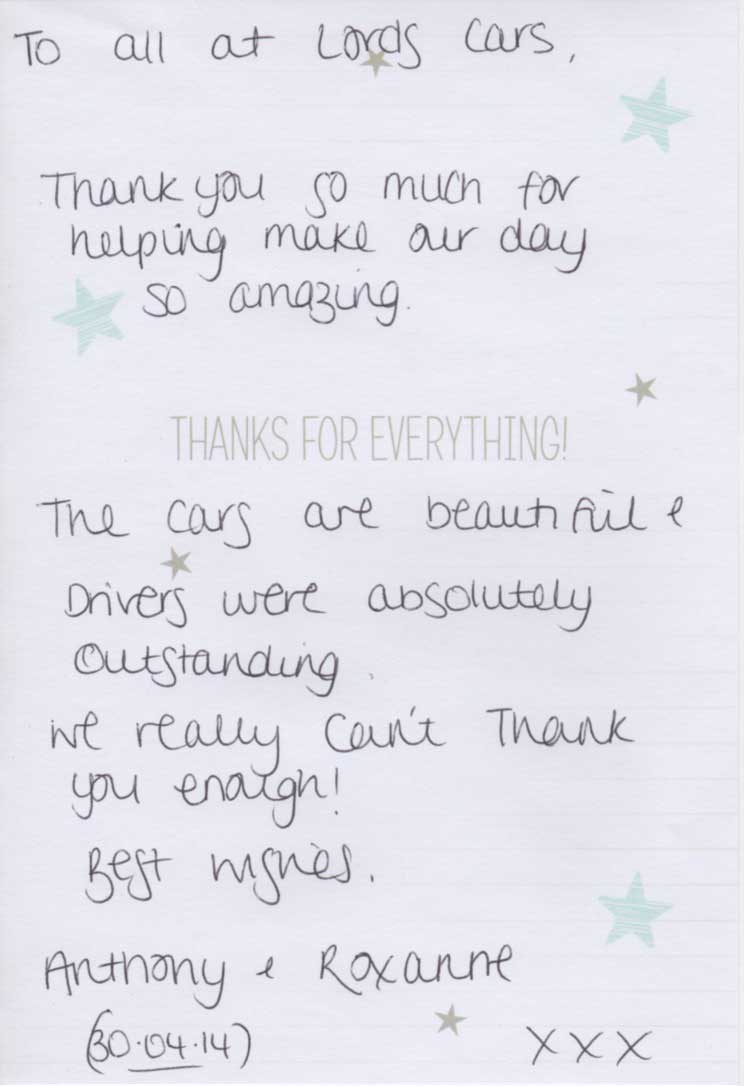 To all at Lords Cars,
Thank you so much for
helping make our day
so amazing.
THANKS FOR EVERYTHING!
The cars are beautiful &
Drivers were absolutely
Outstanding.
We really can't Thank
you enough!
Best wishes.
Anthony & Roxanne
(30.04.14)
xxx